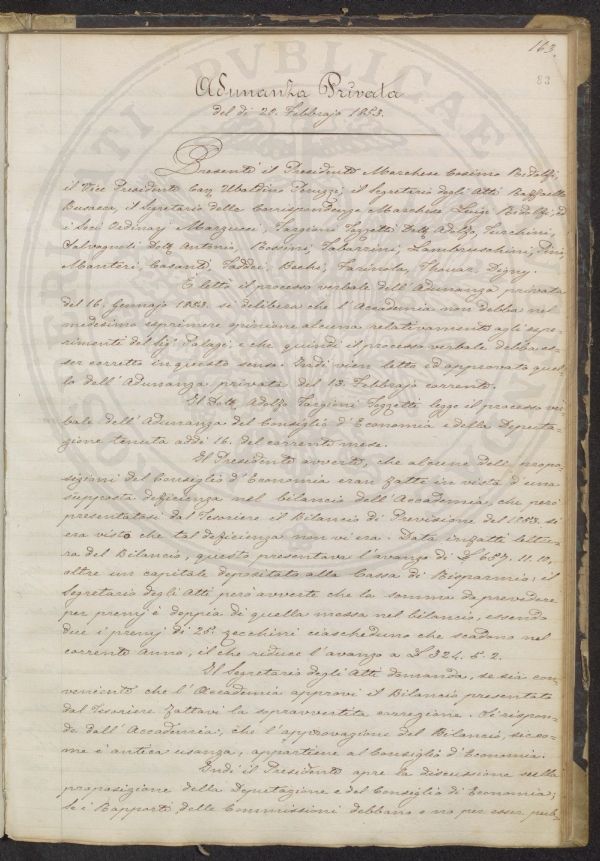 163.
83
Adunanza Privata
del dì 20. Febbrajo 1853.
Presenti il Presidente Marchese Cosimo Ridolfi,
il Vice Presidente Cav. Ubaldino Peruzzi, il Segretario degli Atti Raffaello
Busacca, il Segretario delle Corrispondenze Marchese Luigi Ridolfi, ed
i Soci Ordinarj Marzucchi, Targioni Tozzetti Dott. Adolfo, Turchini,
Salvagnoli Dott. Antonio, Rossini, Tabarrini, Lambruschini,
Manteri, Casanti, Taddei, Bechi, Farinola, Thouar, Digny.
È letto il processo verbale dell'Adunanza privata
del 16. Gennajo 1853. si delibera che l'Accademia non debba nel
medesimo esprimere opinione alcuna relativamente agli espe-
rimenti del Sig.r Palagi, e che quindi il processo verbale debba es-
ser corretto in questo senso. Indi vien letto ed approvato quel-
lo dell'Adunanza privata del 13. Febbrajo corrente.
Il Dott. Adolfo Targioni Tozzetti legge il processo ver-
bale dell'Adunanza del Consiglio d'Economia e della Deputa-
zione tenuta addì 16. del corrente mese.
Il Presidente avverte, che alcune delle propo-
sizioni del Consiglio d'Economia eran fatte in vista d'una
supposta deficienza nel bilancio dell'Accademia, che però
presentatosi dal Tesoriere il Bilancio di Previsione del 1853. si
era visto che tal deficienza non vi era. Data infatti lettu-
ra del Bilancio, questo presentava l'avanzo di £ 687. 11. 10,
oltre un capitale depositato alla Cassa di Risparmio; il
Segretario degli Atti però avverte che la somma da prevedere
per premj è doppia di quella messa nel bilancio, essendo
due i premj di 25. zecchini ciascheduno che scadono nel
corrente anno, il che riduce l'avanzo a £ 324. 5. 2.
Il Segretario degli Atti domanda, se sia con-
veniente che l'Accademia approvi il Bilancio presentato
dal Tesoriere fattavi la sopravvertita correzione. Si rispon-
de dall'Accademia, che l'approvazione del Bilancio, sicco-
me è antica usanza, appartiene al Consiglio d'Economia.
Indi il Presidente apre la discussione sulla
proposizione della Deputazione e del Consiglio di Economia;
se i Rapporti delle Commissioni debbano o no per esser pub-